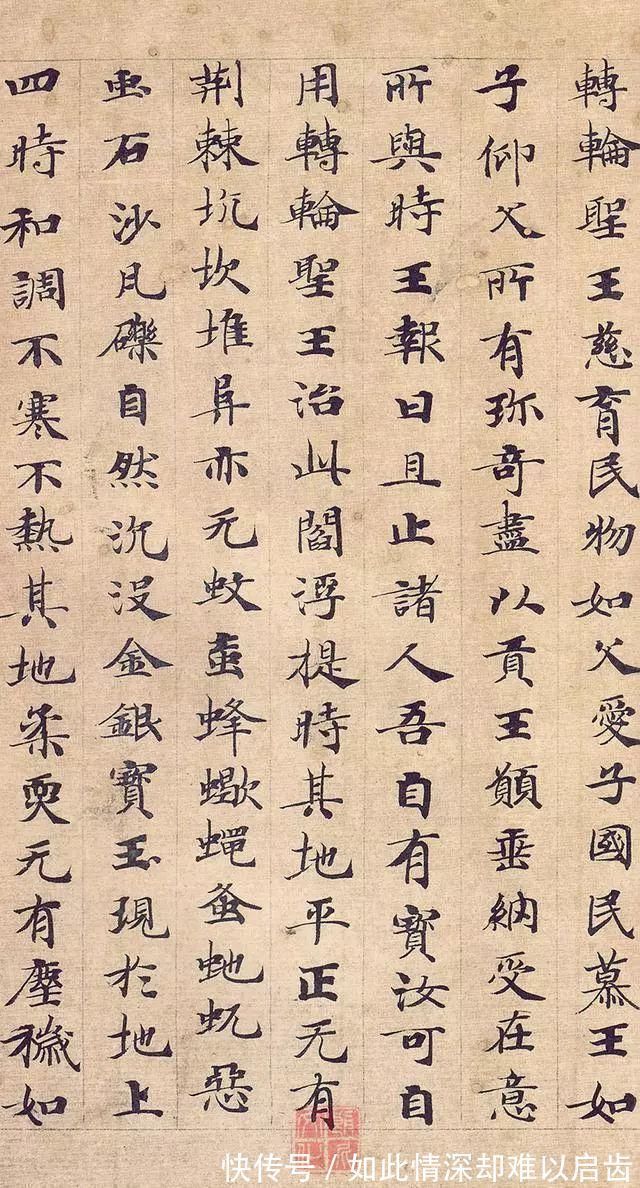 轉輪聖王慈育民物如父愛子國民慕王如
子仰父所有珎奇盡以貢王願垂納受在意
所與時王報曰且止諸人吾自有寶汝可自
用轉輪聖王治此閻浮提時其地平正无有
荆棘坑坎堆阜亦无蚊䖟蜂蠍蠅蚤虵虺惡
虫石沙瓦礫自然沉没金銀寶玉現於地上
四時和調不寒不熱其地柔耎无有塵穢如
快传号 / 如此情深却难以启齿